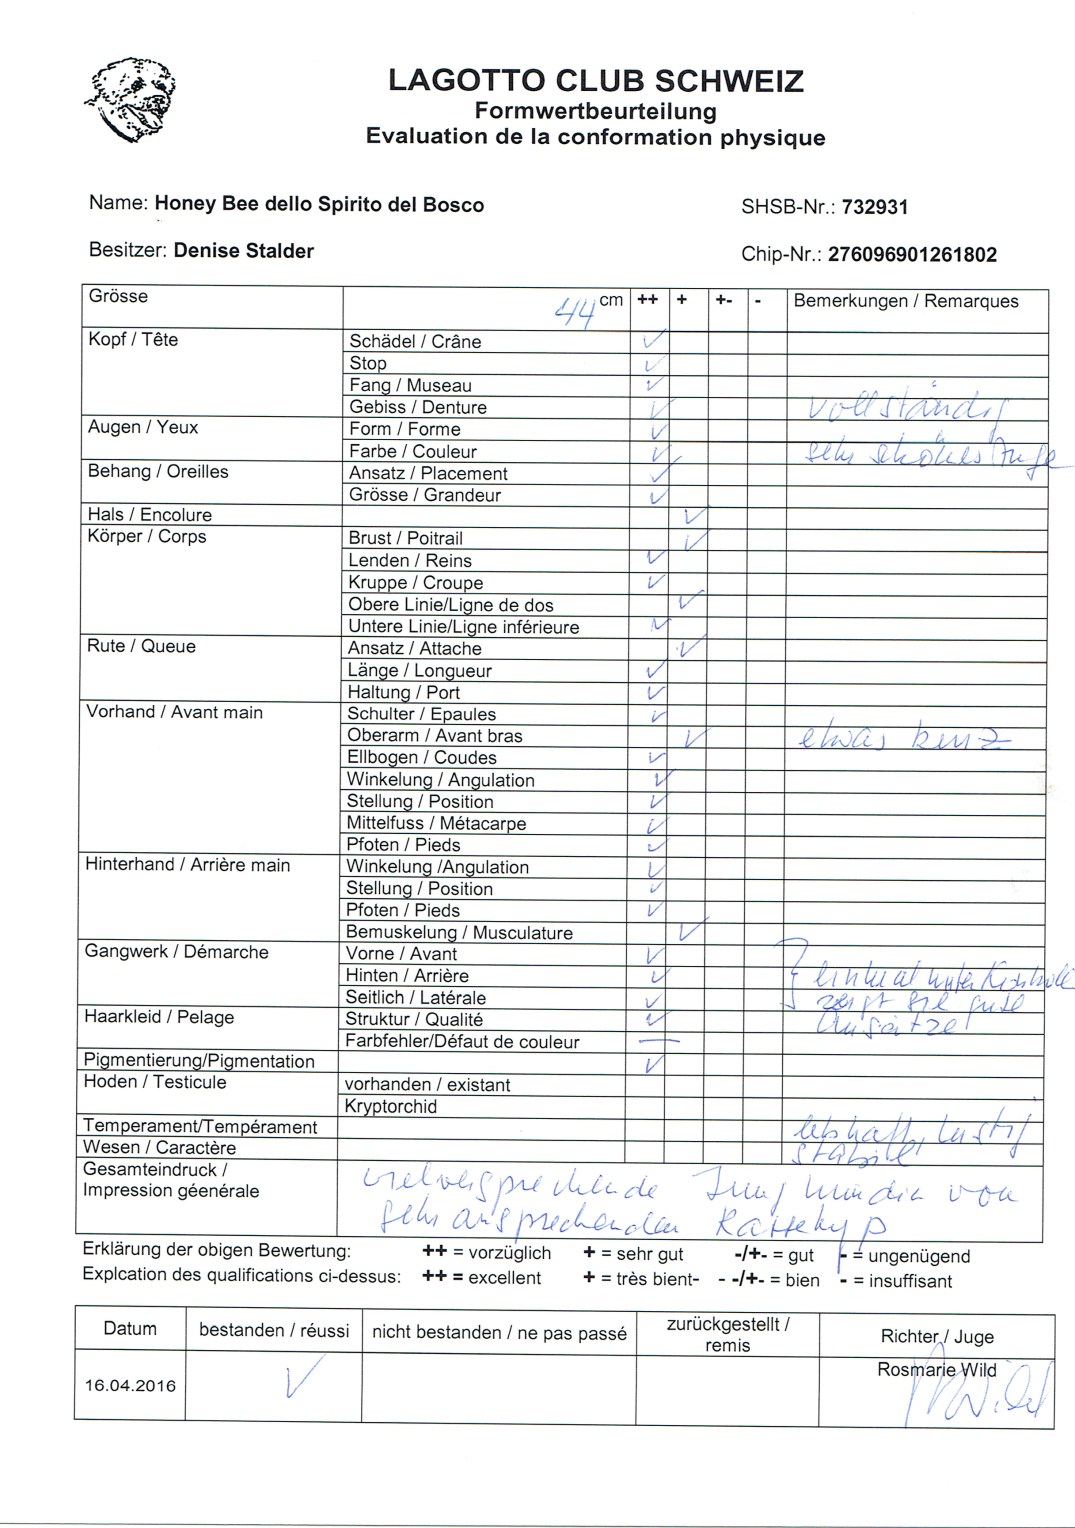 LAGOTTO CLUB SCHWEIZ
Formwertbeurteilung
Evaluation de la conformation physique
Name: Honey Bee dello Spirito del Bosco SHSB-Nr.: 732931
Besitzer: Denise Stalder Chip-Nr.: 276096901261802
Grösse 44 cm ++ + +- - Bemerkungen / Remarques
Kopf / Tête Schädel / Crâne ✓
Stop ✓
Fang / Museau ✓
Gebiss / Denture ✓ vollständig
Augen / Yeux Form / Forme ✓
Farbe / Couleur ✓ sehr schönes Auge
Behang / Oreilles Ansatz / Placement ✓
Grösse / Grandeur ✓
Hals / Encolure ✓
Körper / Corps Brust / Poitrail ✓
Lenden / Reins ✓
Kruppe / Croupe ✓
Obere Linie/Ligne de dos ✓
Untere Linie/Ligne inférieure ✓
Rute / Queue Ansatz / Attache ✓
Länge / Longueur ✓
Haltung / Port ✓
Vorhand / Avant main Schulter / Epaules ✓
Oberarm / Avant bras ✓ etwas kurz
Ellbogen / Coudes ✓
Winkelung / Angulation ✓
Stellung / Position ✓
Mittelfuss / Métacarpe ✓
Pfoten / Pieds ✓
Hinterhand / Arrière main Winkelung /Angulation ✓
Stellung / Position ✓
Pfoten / Pieds ✓
Bemuskelung / Musculature ✓
Gangwerk / Démarche Vorne / Avant ✓
Hinten / Arrière ✓ einmal unter Kontrolle
Seitlich / Latérale ✓ zeigt sie gute
Haarkleid / Pelage Struktur / Qualité ✓ Ansätze
Farbfehler/Défaut de couleur —
Pigmentierung/Pigmentation ✓
Hoden / Testicule vorhanden / existant
Kryptorchid
Temperament/Tempérament lebhaft, lustig
Wesen / Caractère stabil
Gesamteindruck / vielversprechende Junghündin von
Impression géenérale sehr ansprechendem Rassetyp
Erklärung der obigen Bewertung: ++ = vorzüglich + = sehr gut -/+- = gut - = ungenügend
Explcation des qualifications ci-dessus: ++ = excellent + = très bient- - -/+- = bien - = insuffisant
Datum bestanden / réussi nicht bestanden / ne pas passé zurückgestellt / remis Richter / Juge
16.04.2016 ✓ Rosmarie Wild
R Wild